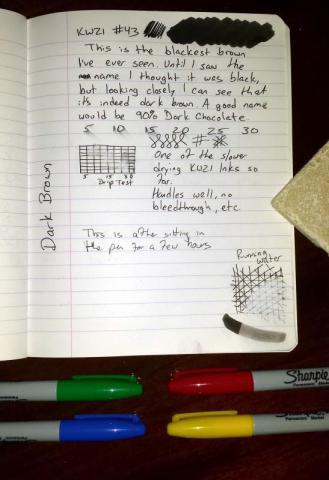 KWZI #43
This is the blackest brown
I've ever seen. Until I saw the
name I thought it was black,
but looking closely I can see that
it's indeed dark brown. A good name
would be 90% Dark Chocolate.
5 10 15 20 25 30
5 15 30
Drip Test
One of the slower
drying KWZI Inks so
far.
Handles well, no
bleedthrough, etc
Dark Brown
This is after sitting in
the pen for a few hours
Running
water
Sharpie
Permanent Marker